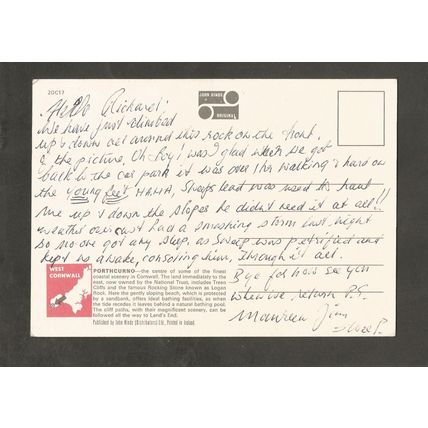 2DC17
Hello Richard!
We have just climbed
up & down and around this rock on the front
of the picture. Oh boy! was I glad when we got
back to the car park it was one hrs walking & hard on
the young feet HAHA, Sweeps lead was used to haul
me up & down the slopes he didn't need it at all!!
weather had a smashing storm last night
So no one got any sleep, as Sweep was petrified and
kept us awake, consoling him, through it all.
Bye for now see you
when we return P.S.
Maureen Jim
WEST
CORNWALL
PORTHCURNO—the centre of some of the finest
coastal scenery in Cornwall. The land immediately to the
east, now owned by the National Trust, includes Treen
Cliffs and the famous Rocking Stone known as Logan
Rock. Here the gently sloping beach, which is protected
by a sandbank, offers ideal bathing facilities, as when
the tide recedes it leaves behind a natural bathing pool.
The cliff paths, with their magnificent scenery, can be
followed all the way to Land's End.
Published by John Hinde (Distributors) Ltd., Printed in Ireland.